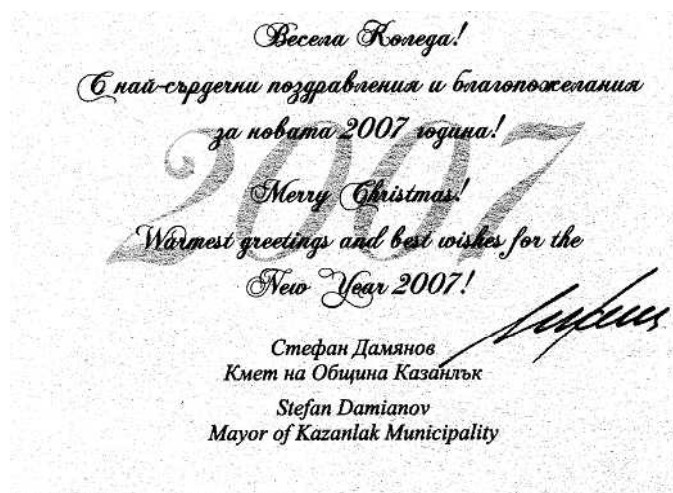 Весела Коледа!
С най-сърдечни поздравления и благопожелания
за новата 2007 година!
2007
Merry Christmas!
Warmest greetings and best wishes for the
New Year 2007!
Стефан Дамянов
Кмет на Община Казанлък
Stefan Damianov
Mayor of Kazanlak Municipality